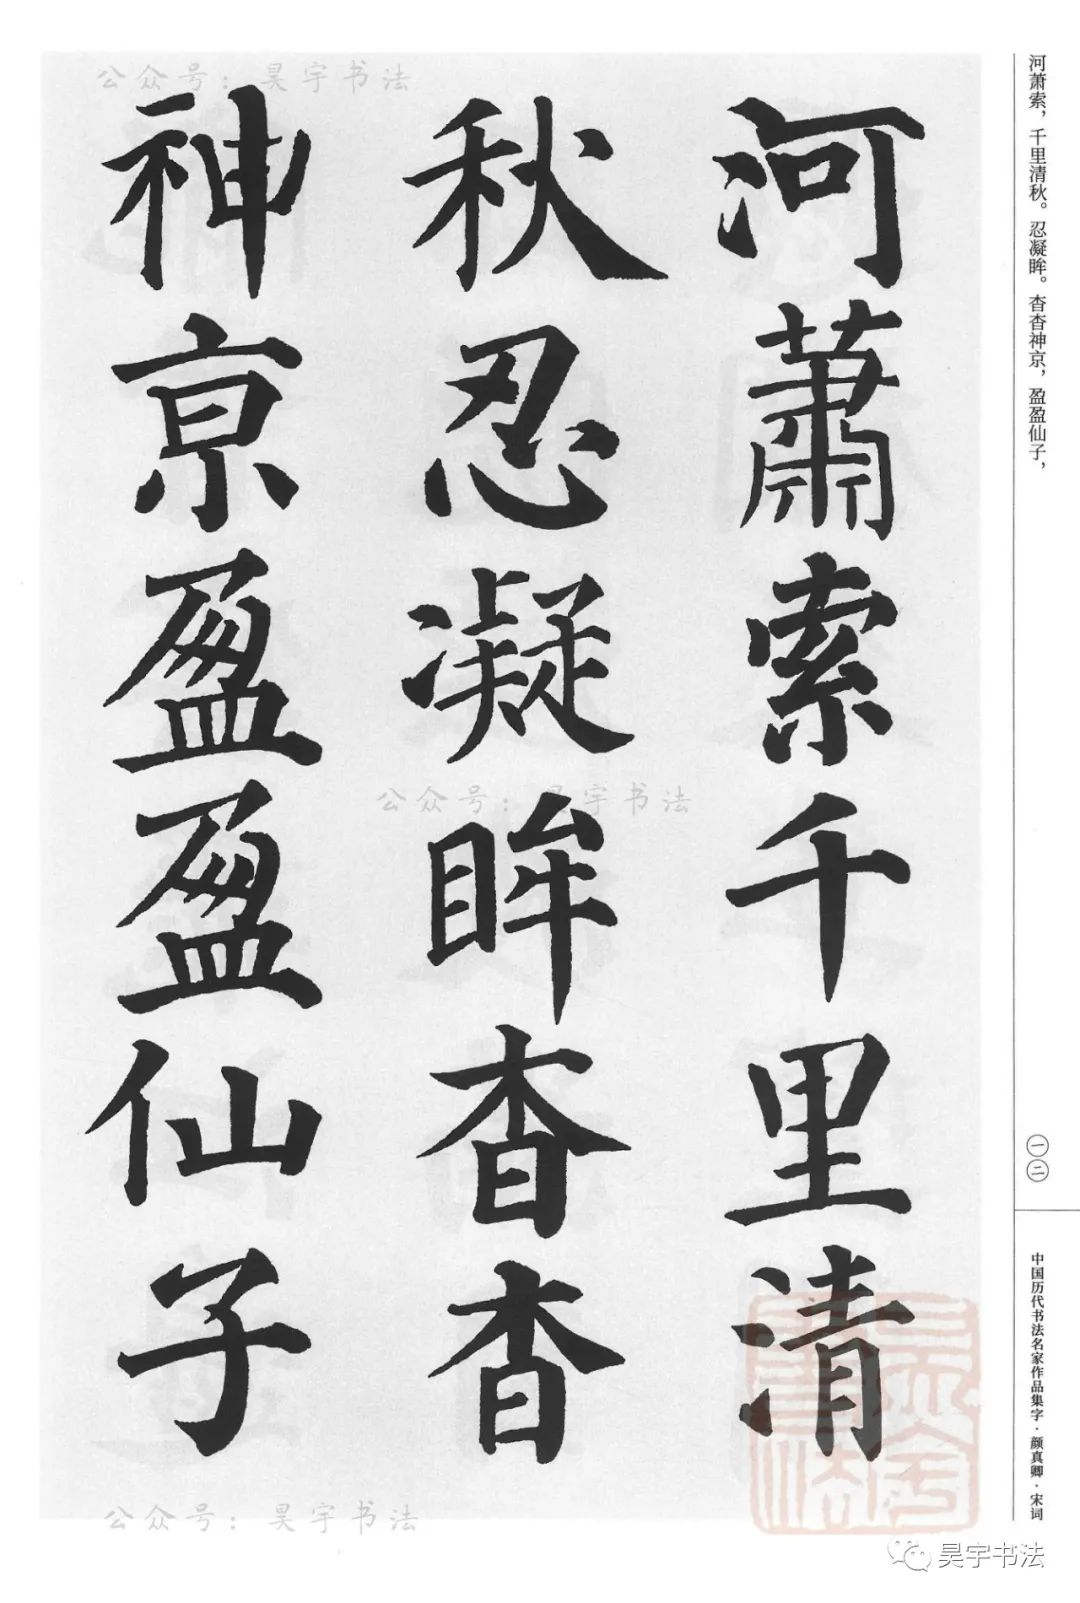 河萧索，千里清秋。忍凝眸。杳杳神京，盈盈仙子，
河蕭索千里清
秋忍凝眸杳杳
神京盈盈仙子
一二
中国历代书法名家作品集字·颜真卿·宋词
公众号：昊宇书法
公众号：昊宇书法
公众号：昊宇书法
昊宇书法
昊宇书法